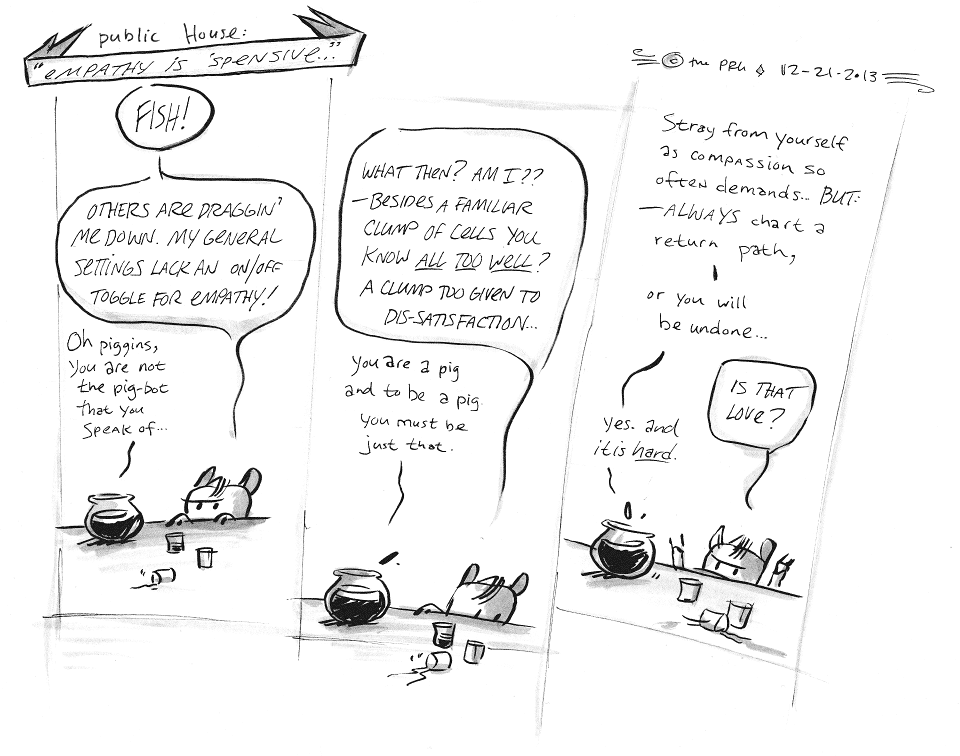 public House:
"EMPATHY IS 'SPENSIVE..."
© the PRU ◊ 12-21-2013
FISH!
OTHERS ARE DRAGGIN'
ME DOWN. MY GENERAL
SETTINGS LACK AN ON/OFF
TOGGLE FOR EMPATHY!
Oh piggins,
you are not
the pig-bot
that you
speak of...
WHAT THEN? AM I??
—BESIDES A FAMILIAR
CLUMP OF CELLS YOU
KNOW ALL TOO WELL?
A CLUMP TOO GIVEN TO
DIS-SATISFACTION...
you are a pig
and to be a pig
you must be
just that.
Stray from yourself
as compassion so
often demands... BUT:
—ALWAYS chart a
return path,
or you will
be undone...
IS THAT
LOVE?
yes. and
it is hard.